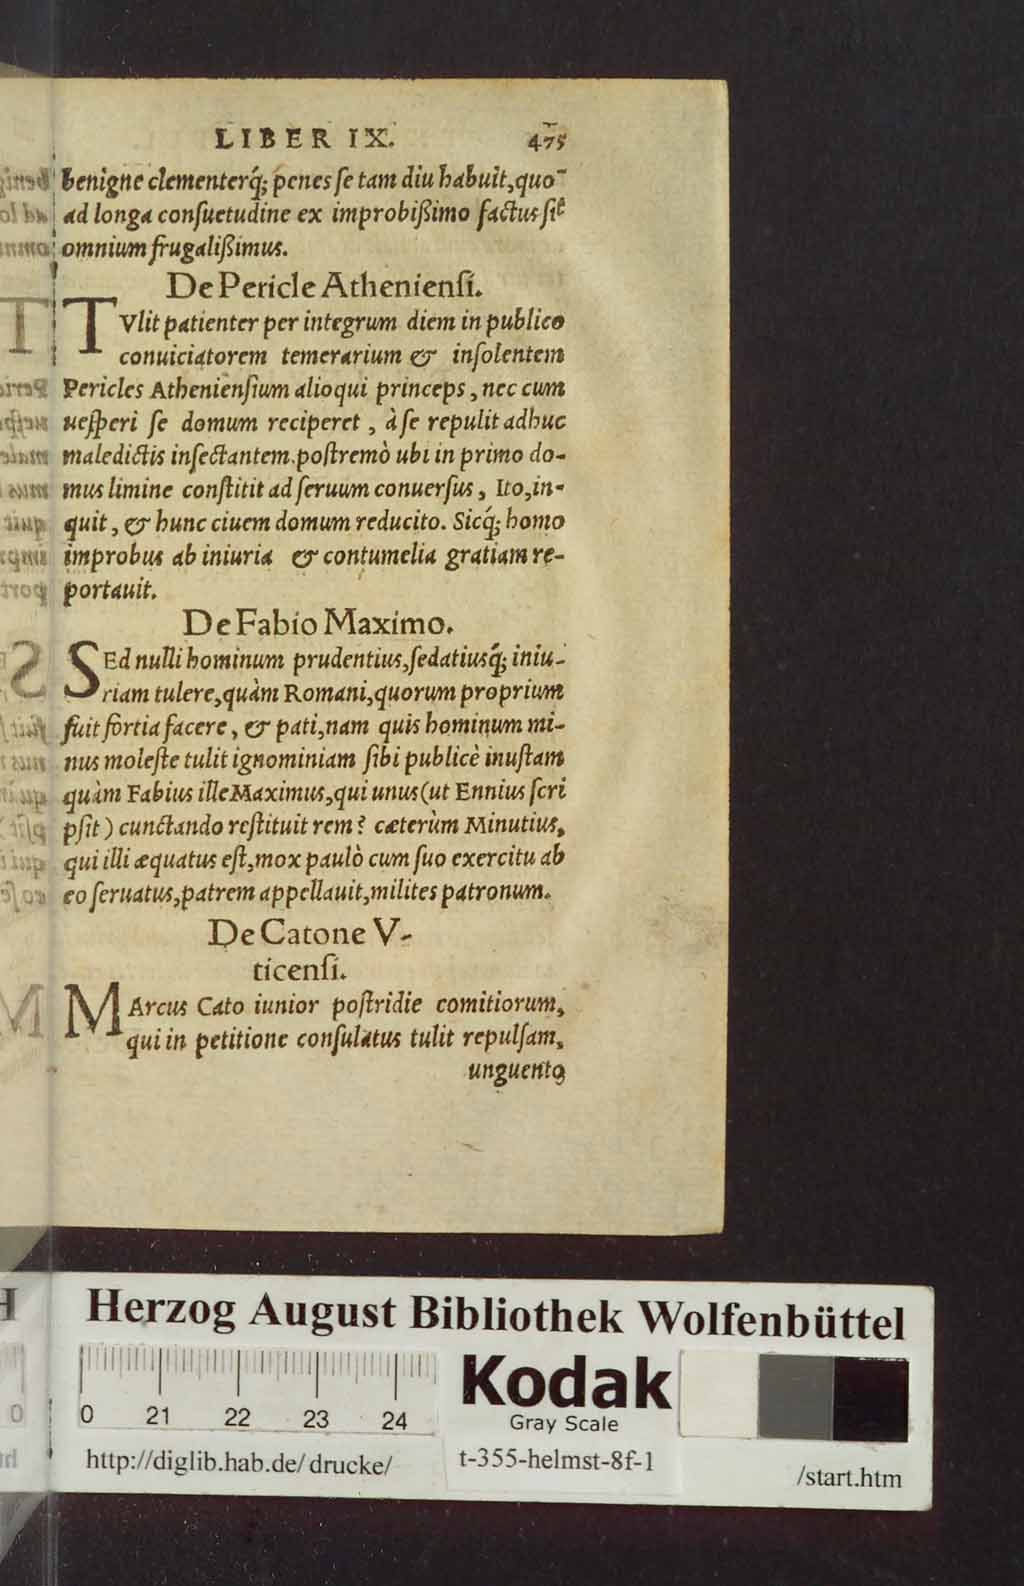 LIBER IX. 475
benigne clementerq́; penes ſe tam diu habuit, quo-
ad longa conſuetudine ex improbißimo factus ſit
omnium frugalißimus.
De Pericle Athenienſi.
TVlit patienter per integrum diem in publico
conuiciatorem temerarium & inſolentem
Pericles Athenienſium alioqui princeps, nec cum
ueſperi ſe domum reciperet, à ſe repulit adhuc
maledictis inſectantem. poſtremò ubi in primo do-
mus limine conſtitit ad ſeruum conuerſus, Ito, in-
quit, & hunc ciuem domum reducito. Sicq́; homo
improbus ab iniuria & contumelia gratiam re-
portauit.
De Fabio Maximo.
SEd nulli hominum prudentius, ſedatiusq́; iniu-
riam tulere, quàm Romani, quorum proprium
fuit fortia facere, & pati, nam quis hominum mi-
nus moleſte tulit ignominiam ſibi publicè inuſtam
quàm Fabius ille Maximus, qui unus (ut Ennius ſcri
pſit) cunctando reſtituit rem? cæterùm Minutius,
qui illi æquatus eſt, mox paulò cum ſuo exercitu ab
eo ſeruatus, patrem appellauit, milites patronum.
De Catone V-
ticenſi.
MArcus Cato iunior poſtridie comitiorum,
qui in petitione conſulatus tulit repulſam,
unguento
Herzog August Bibliothek Wolfenbüttel
0 21 22 23 24
Kodak
Gray Scale
http://diglib.hab.de/drucke/
t-355-helmst-8f-1
/start.htm